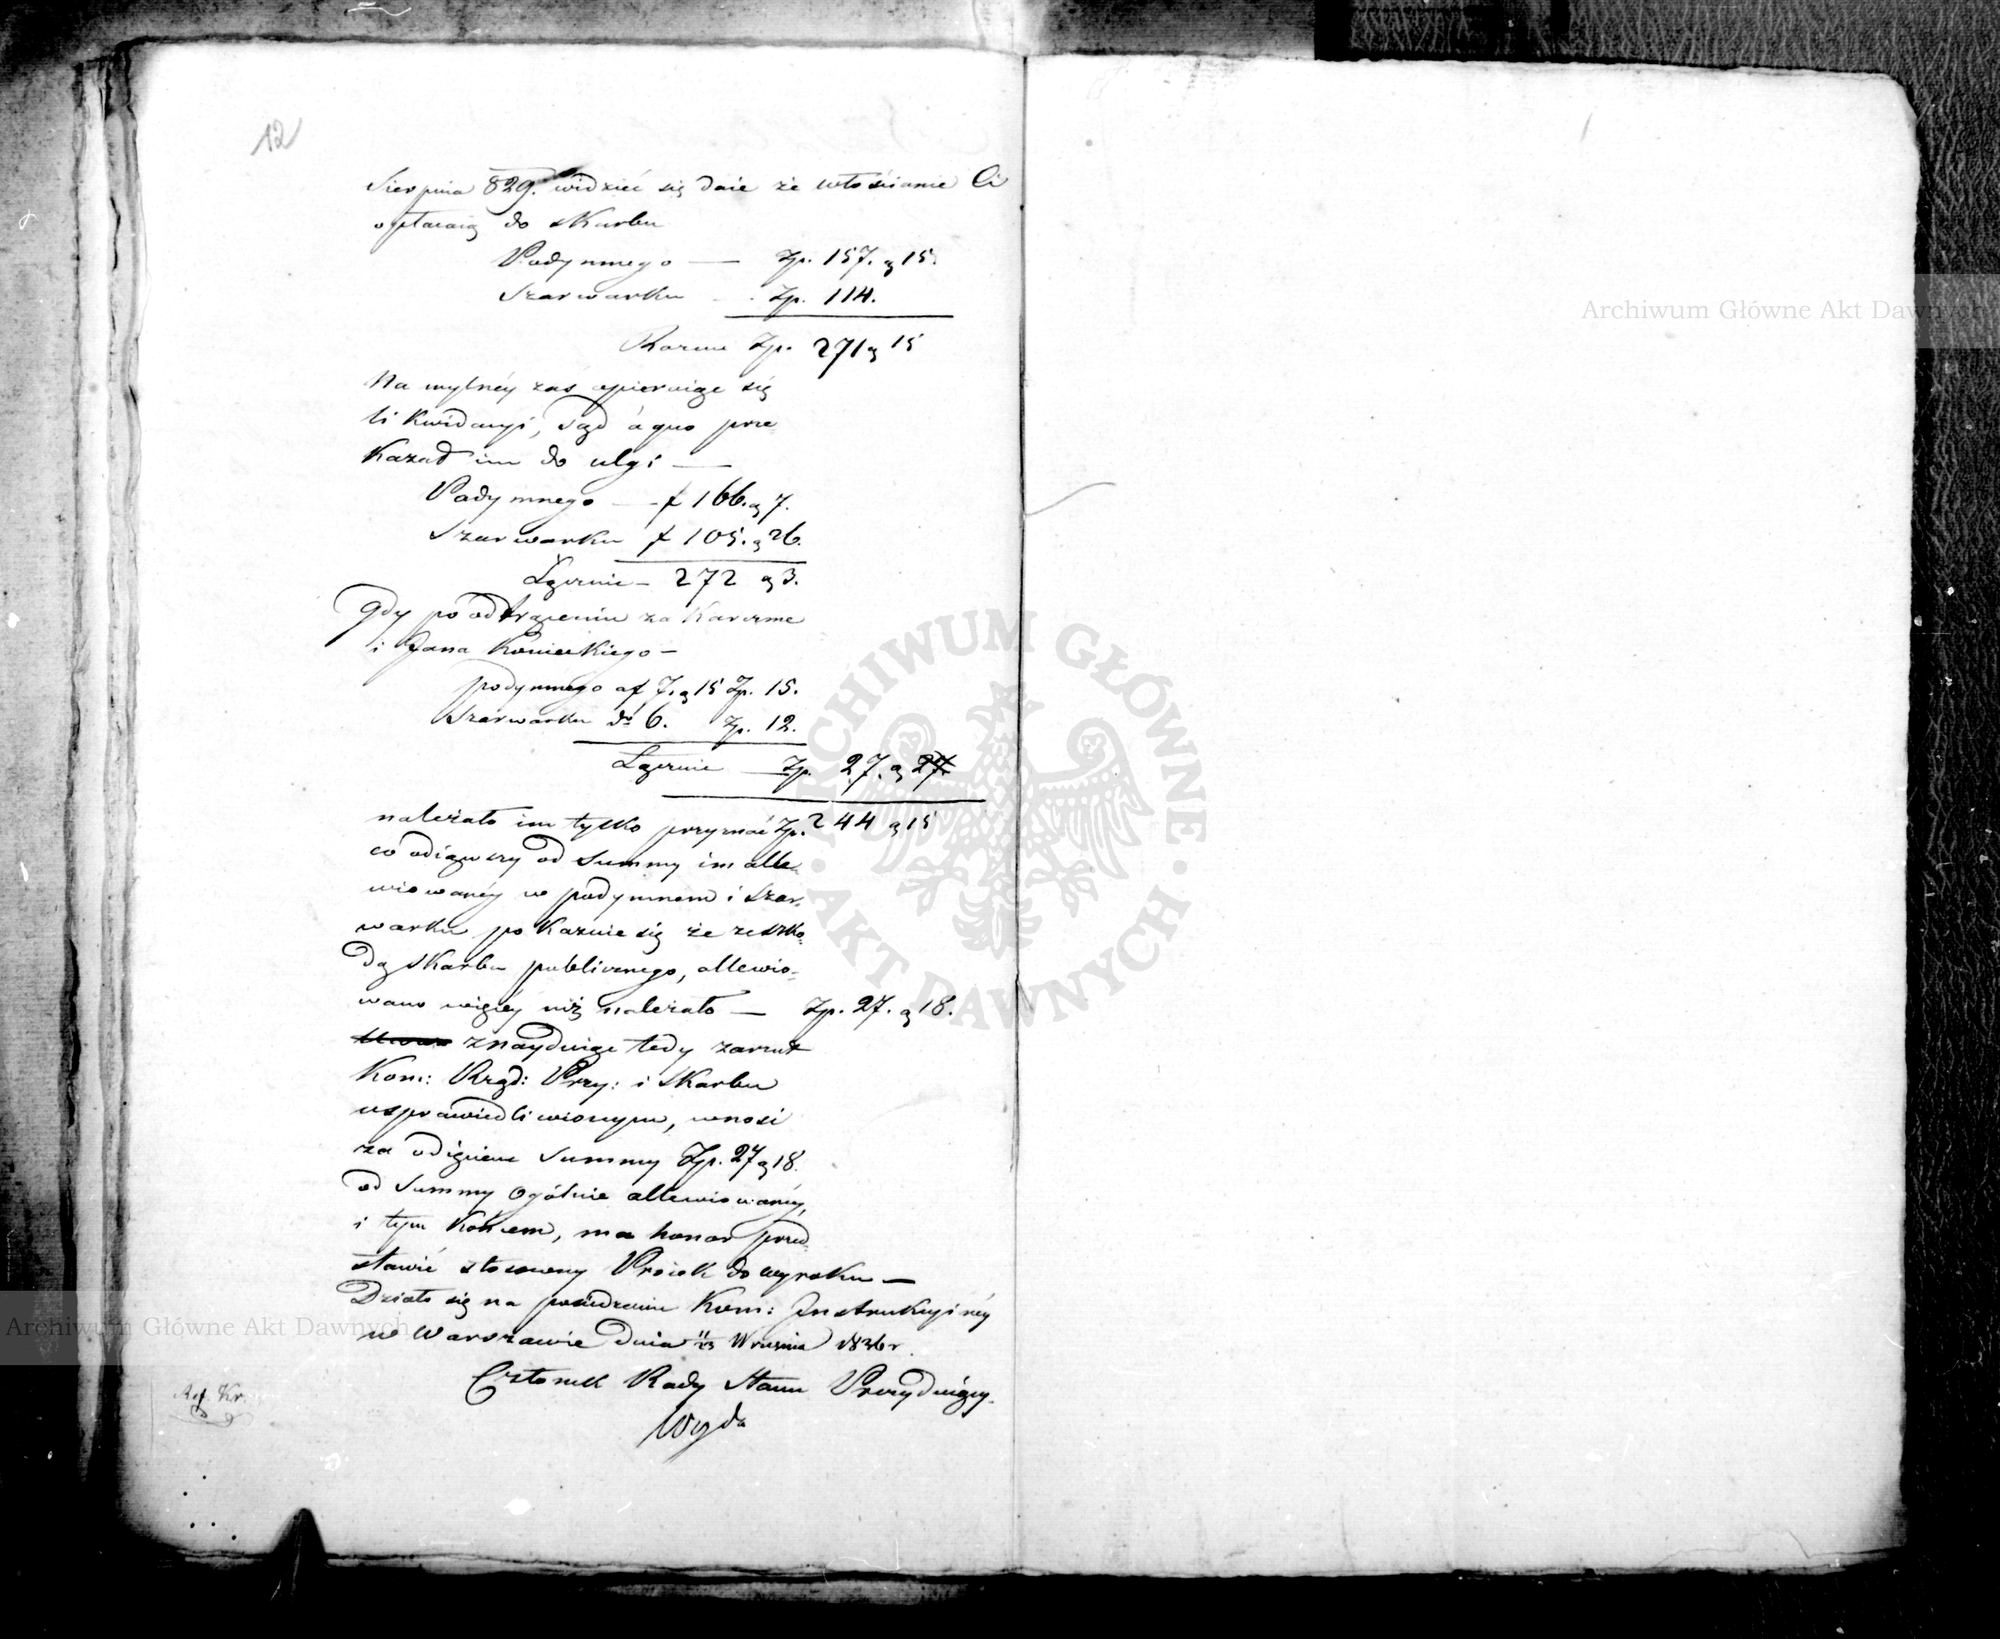 12
Sierpnia 829. widzieć się daie że włościanie Ci
opłacaią do skarbu
Podymnego — Zp. 157. g 15.
Szarwarku — Zp. 114.
Razem Zp. 271 g 15
Na mylnéy zaś opieraiąc się
likwidacyi, Sąd à quo prze
kazał im do ulgi —
Podymnego — f 166. g 7.
Szarwarku f 105. g 26.
Łącznie — 272 g 3.
Gdy po odtrąceniu za Karczmę
i Jana Konieckiego —
podymnego a f 7. g 15 Zp. 15.
Szarwarku do 6. Zp. 12.
Łącznie — Zp. 27. g
należało im tylko przyznać Zp. 244 g 15
co odiąwszy od Summy im alle
wiowanéy w podymnem i Szar-
warku pokazuie się że ze szko-
dą skarbu publicznego, allewio-
wano więcéy niż należało — Zp. 27. g 18.
znayduiąc tedy zarzut
Kom: Rząd: Przy: i Skarbu
usprawiedliwionym, wnosi
za odięciem Summy Zp. 27 g 18.
od Summy ogólnie allewiowanéy,
i tym końcem, ma honor przed-
stawić stosowny Proiekt do wyroku —
Działo się na posiedzeniu Kom: Instrukcyinéy
w Warszawie dnia 11/23 Września 1836 r.
Członek Rady Stanu Prezyduiący
Woyda
Ref. Kr.
Archiwum Główne Akt Dawnych
Archiwum Główne Akt Dawnych
ARCHIWUM GŁÓWNE · AKT DAWNYCH ·